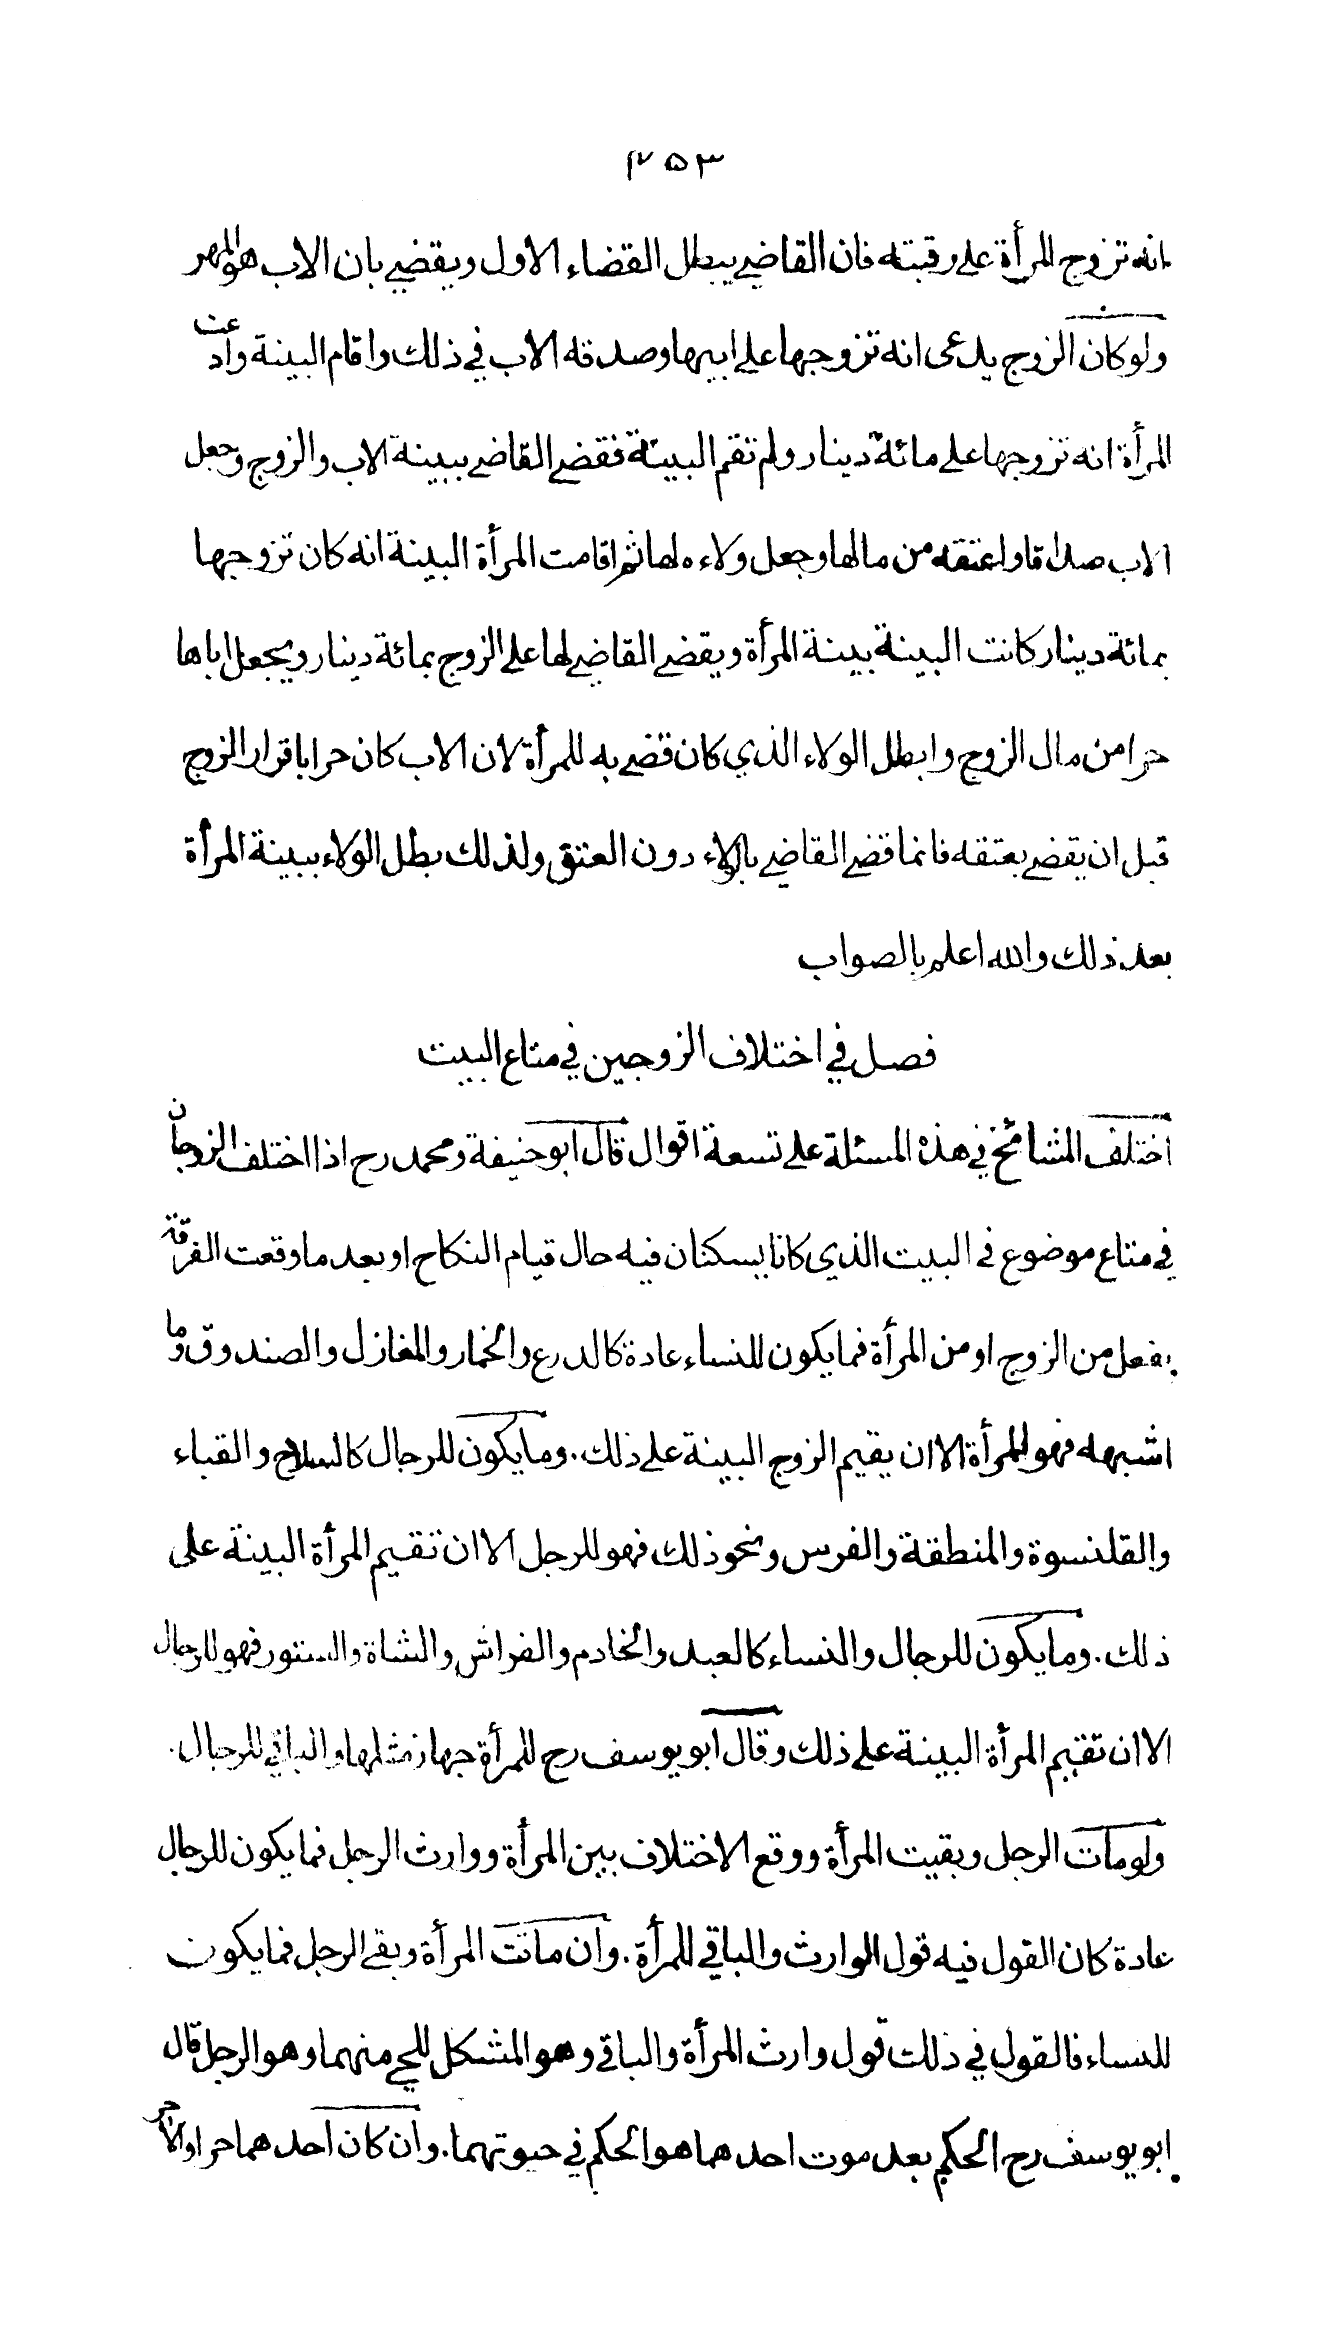 ۴۵۳
انه تزوج المرأة على رقبته فان القاضي يبطل القضاء الاول ويقضي بان الاب هو المهر
ولو كان الزوج يدعى انه تزوجها على ابيها وصدقه الاب في ذلك واقام البينة وادعت
المرأة انه تزوجها على مائة دينار ولم تقم البينة فقضى القاضي ببينة الاب والزوج وجعل
الاب صداقا واعتقه من مالها وجعل ولاءه لها ثم اقامت المرأة البينة انه كان تزوجها
بمائة دينار كانت البينة بينة المرأة ويقضى القاضي لها على الزوج بمائة دينار ويجعل اباها
حرا من مال الزوج وابطل الولاء الذي كان قضى به للمرأة لان الاب كان حرا باقرار الزوج
قبل ان يقضى بعتقه فانما قضى القاضي بالولاء دون العتق ولذلك بطل الولاء ببينة المرأة
بعد ذلك والله اعلم بالصواب
فصل في اختلاف الزوجين في متاع البيت
اختلف المشائخ في هذه المسئلة على تسعة اقوال قال ابو حنيفة ومحمد رح اذا اختلف الزوجان
في متاع موضوع في البيت الذي كانا يسكنان فيه حال قيام النكاح او بعد ما وقعت الفرقة
بفعل من الزوج او من المرأة فما يكون للنساء عادة كالدرع والخمار والمغازل والصندوق وما
اشبهه فهو للمرأة الا ان يقيم الزوج البينة على ذلك. وما يكون للرجال كالسلاح والقباء
والقلنسوة والمنطقة والفرس ونحو ذلك فهو للرجل الا ان تقيم المرأة البينة على
ذلك. وما يكون للرجال والنساء كالعبد والخادم والفراش والشاة والستور فهو للرجال
الا ان تقيم المرأة البينة على ذلك وقال ابو يوسف رح للمرأة جهاز مثلها والباقي للرجال.
ولو مات الرجل وبقيت المرأة ووقع الاختلاف بين المرأة ووارث الرجل فما يكون للرجال
عادة كان القول فيه قول الوارث والباقي للمرأة. وان ماتت المرأة وبقى الرجل فما يكون
للنساء فالقول في ذلك قول وارث المرأة والباقي وهو المشكل للحي منهما وهو الرجل قال
ابو يوسف رح الحكم بعد موت احدهما هو الحكم في حيوتهما. وان كان احدهما حرا والاخر